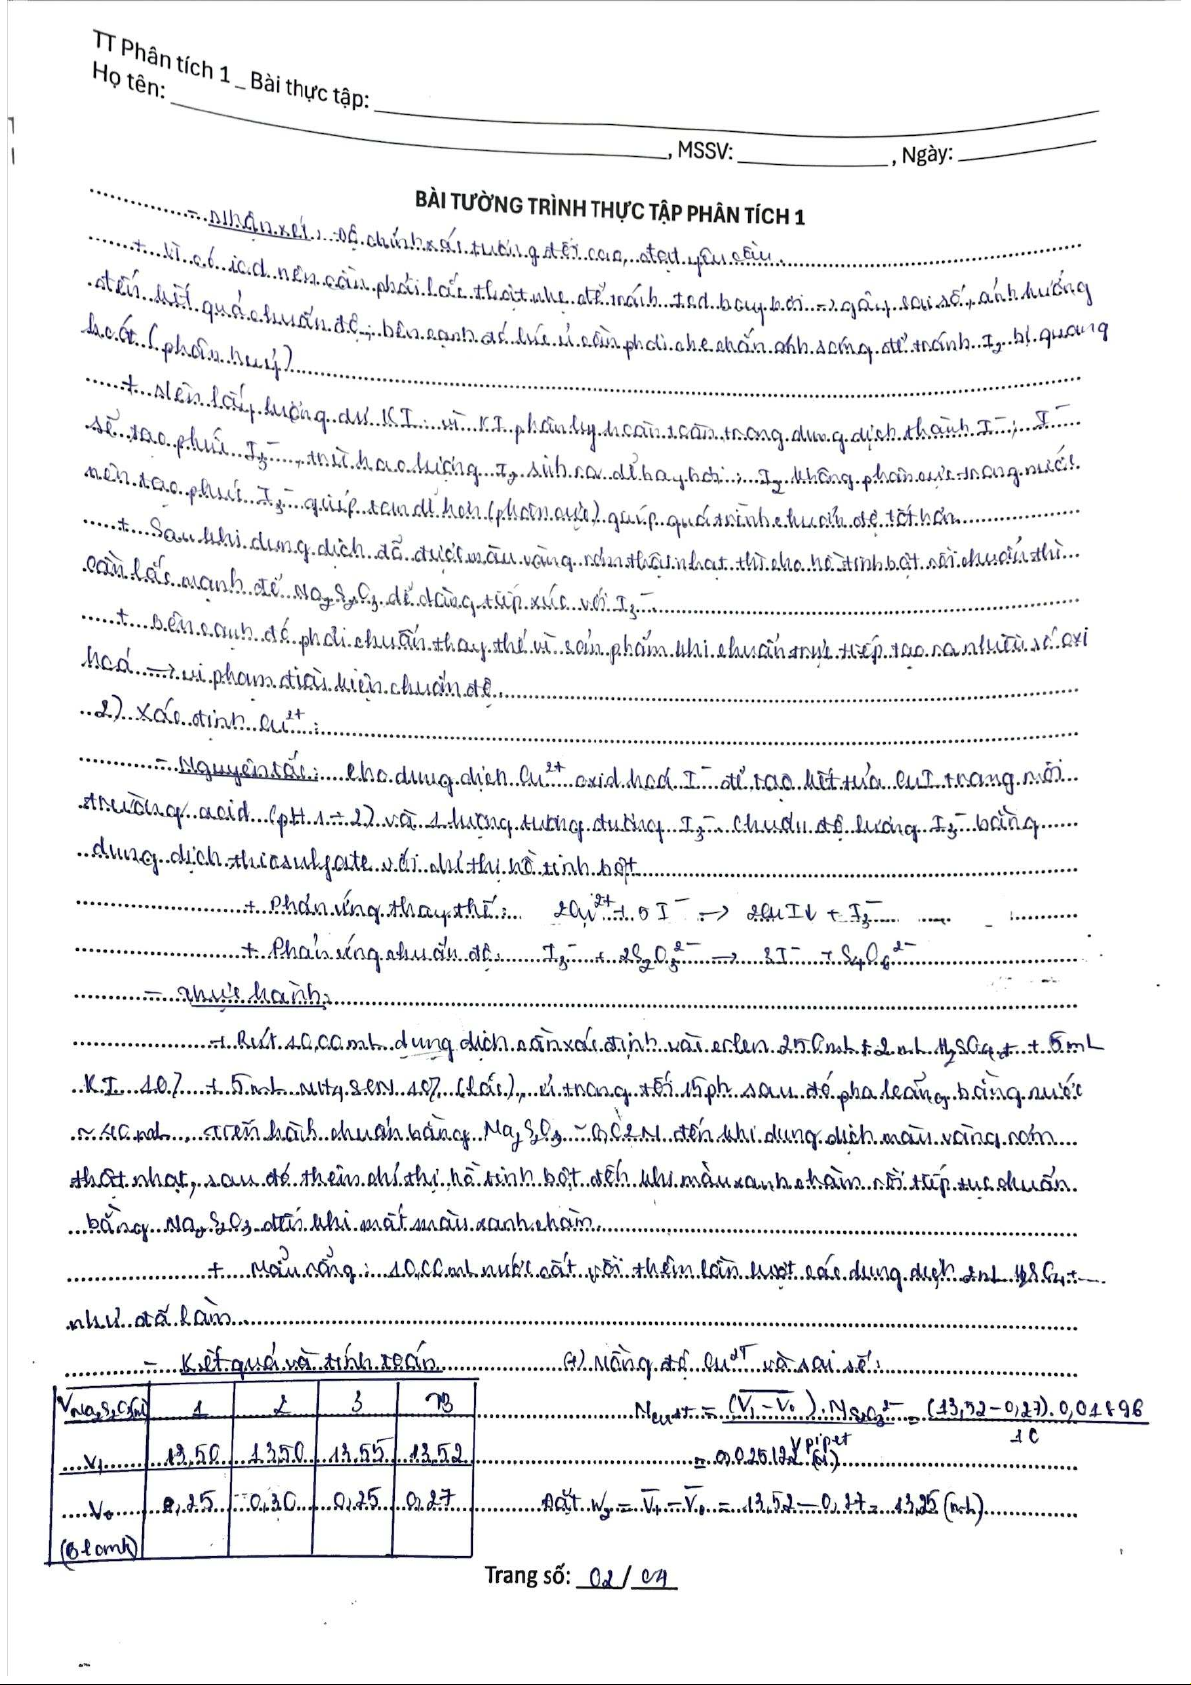 TT Phân tích 1 _ Bài thực tập:
Họ tên: , MSSV: , Ngày:
BÀI TƯỜNG TRÌNH THỰC TẬP PHÂN TÍCH 1
- Nhận xét: Độ chính xác tương đối cao, đạt yêu cầu.
+ Vì có iod nên cần phải lắc thật nhẹ để tránh Iod bay hơi → gây sai số, ảnh hưởng
đến kết quả chuẩn độ, bên cạnh đó lúc ủ cần phải che chắn ánh sáng để tránh I2 bị quang
hoá (phân huỷ)
+ Nên lấy lượng dư KI vì KI phân ly hoàn toàn trong dung dịch thành I⁻, I⁻
sẽ tạo phức I3⁻, trừ hao lượng I2 sinh ra dễ bay hơi; I2 không phân cực trong nước
nên tạo phức I3⁻ giúp tan dễ hơn (phân cực) giúp quá trình chuẩn độ tốt hơn
+ Sau khi dung dịch đã được màu vàng rơm thật nhạt thì cho hồ tinh bột rồi chuẩn thì
cần lắc mạnh để Na2S2O3 dễ dàng tiếp xúc với I3⁻
+ Bên cạnh đó phải chuẩn thay thế vì sản phẩm khi chuẩn trực tiếp tạo ra nhiều số oxi
hoá → vi phạm điều kiện chuẩn độ
2) Xác định Cu²⁺:
- Nguyên tắc: Cho dung dịch Cu²⁺ oxid hoá I⁻ để tạo kết tủa CuI trong môi
trường acid (pH 1 ÷ 2) và 1 lượng tương đương I3⁻. Chuẩn độ lượng I3⁻ bằng
dung dịch thiosulfate với chỉ thị hồ tinh bột
+ Phản ứng thay thế: 2Cu²⁺ + 5I⁻ → 2CuI↓ + I3⁻
+ Phản ứng chuẩn độ: I3⁻ + 2S2O3²⁻ → 3I⁻ + S4O6²⁻
- Thực hành:
+ Rút 10,00 mL dung dịch cần xác định vào erlen 250mL + 2 mL H2SO4 + 5mL
KI 10% + 5mL NH4SCN 10% (lắc), ủ trong tối 15ph sau đó pha loãng bằng nước
~ 40 mL, tiến hành chuẩn bằng Na2S2O3 ~ 0,02N đến khi dung dịch màu vàng rơm
thật nhạt, sau đó thêm chỉ thị hồ tinh bột đến khi màu xanh chàm rồi tiếp tục chuẩn
bằng Na2S2O3 đến khi mất màu xanh chàm
+ Mẫu trắng: 10,00 mL nước cất rồi thêm lần lượt các dung dịch 2mL H2SO4 +
như đã làm
- Kết quả và tính toán a) Nồng độ Cu²⁺ và sai số:
VNa2S2O3(ml) 1 2 3 TB
V1 13,50 13,50 13,55 13,52
V0 0,25 0,30 0,25 0,27
(Blank)
NCu²⁺ = (V1 − V0) . NS2O3²⁻ / Vpipet = (13,52 − 0,27) . 0,01896 / 10
= 0,02512 (N)
Đặt W2 = V1 − V0 = 13,52 − 0,27 = 13,25 (mL)
Trang số: 02 / 04